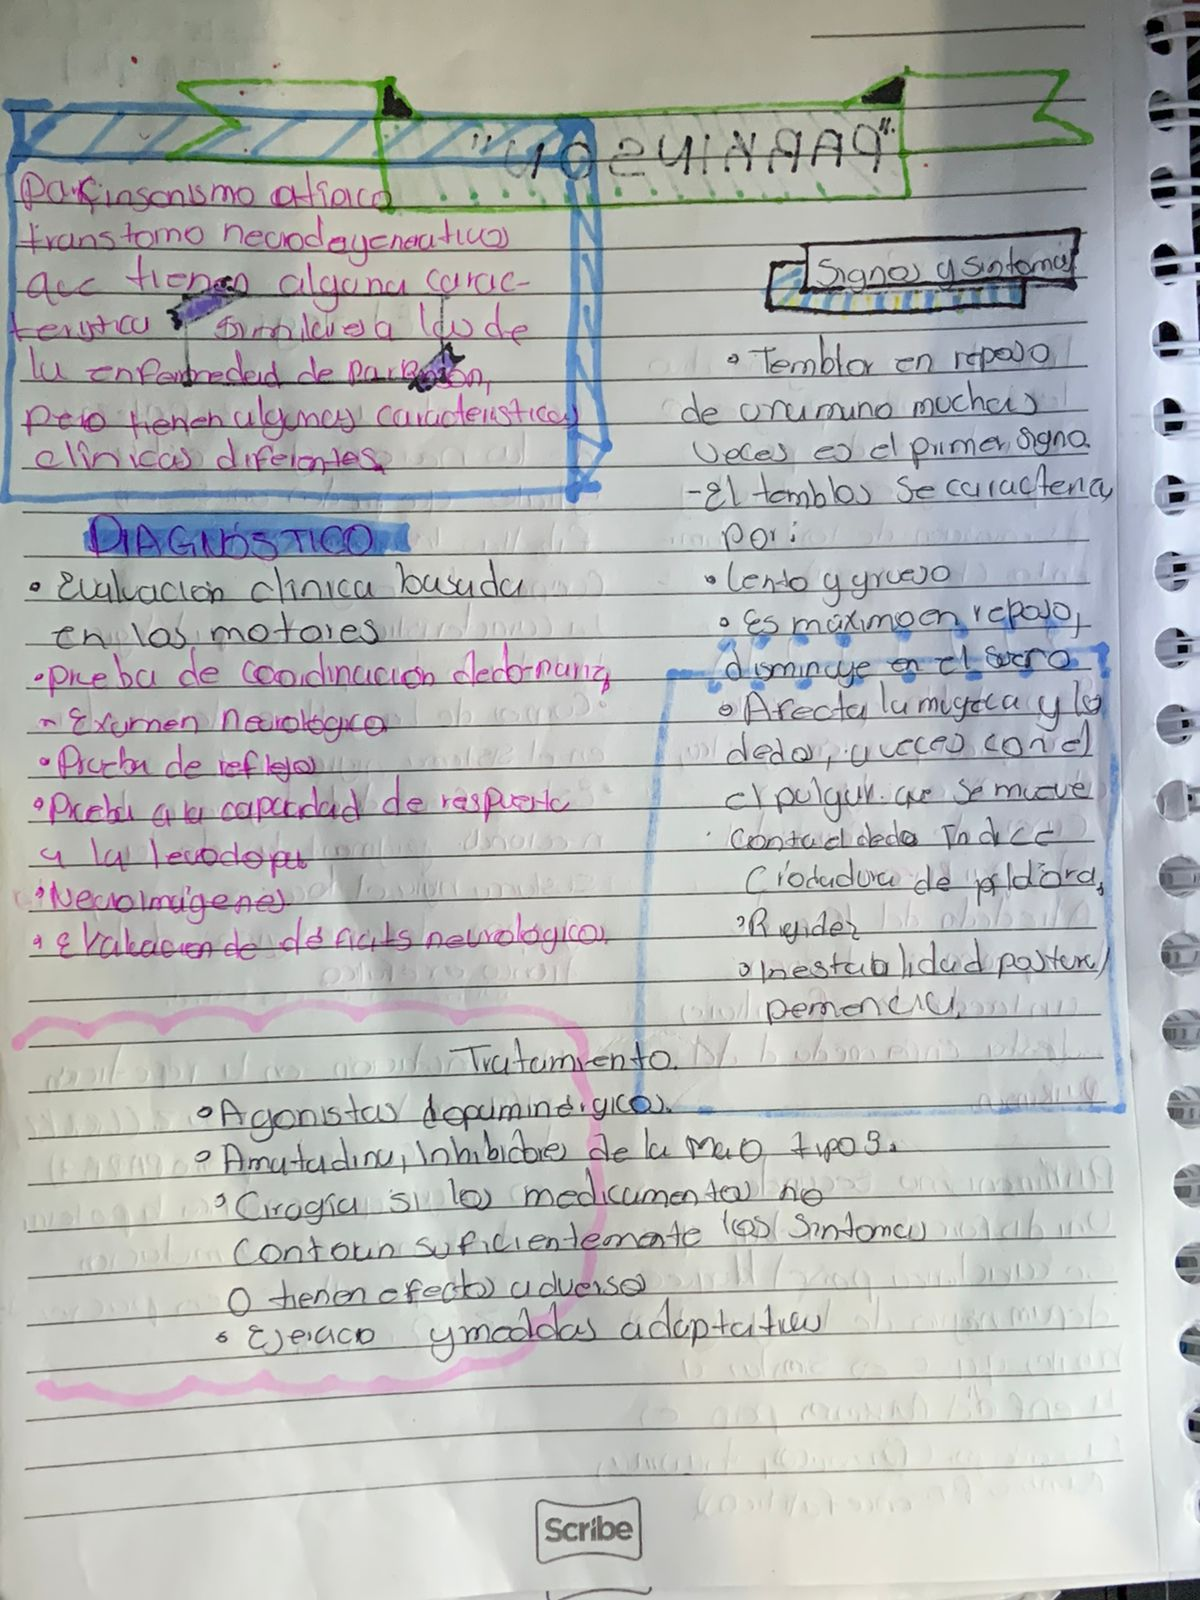 "PARKINSON"
Parkinsonismo atipico
transtorno neurodegenerativo
que tienen alguna carac-
teristica similares a las de
la enfermedad de Parkinson,
pero tienen algunas caracteristicas
clínicas diferentes.
DIAGNÓSTICO
• Evaluación clínica basada
en los motores
• Prueba de coordinación dedo-nariz,
• Examen neurológico
• Prueba de reflejos
• Prueba a la capacidad de respuesta
a la levodopa
• Neuroimágenes
• Evaluacion de déficits neurológico.
Signos y sintomas
• Temblor en reposo
de una mano muchas
veces es el primer signo.
- El temblos se caracteriza
por:
• Lento y grueso
• Es máximo en reposo,
disminuye en el
• Afecta la muñeca y los
dedos, a veces con el
el pulgar que se mueve
contra el dedo Indice
Crodadura de píldora,
• Rigidez
• Inestabilidad postural
Demencia,
Tratamiento.
• Agonistas dopaminérgicos.
• Amatadina, Inhibidores de la MAO tipo B.
• Cirogía si los medicamentos no
suficientemente los sintomas
O tienen efectos adverso
• Ejercico y meddas adaptativas
Scribe